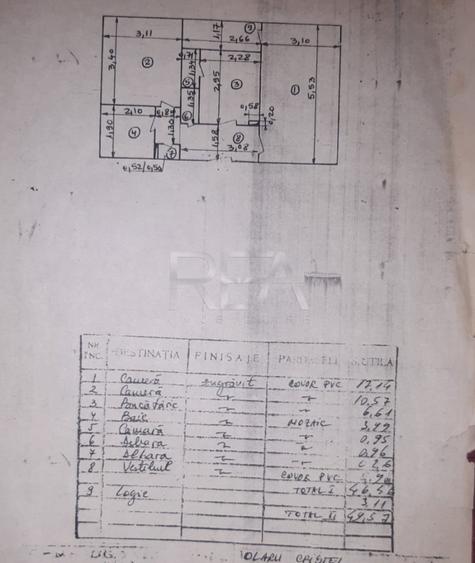 9
3,11 1,17 2,66 3,10
0,71 2,28
3,40 2 1,34 5 2,95 3 1 5,53
1,35 0,58
2,10 0,8 6 0,20
1,90 4 1,30 8
7 1,58 3,08
0,52/0,50
REA
NR. INC. DESTINAȚIA FINISAJE PARDOSELI S.UTILA
1 Cameră zugrăvit COVOR PVC 17,14
2 Camera 10,57
3 6,61
4 Baie MOZAIC 3,99
5 Camară 0,95
6 Debara 0,96
7 Debara
8 Vestibul COVOR PVC
TOTAL I 46,56
9 Logie 3,11
TOTAL II 49,57
OLARU CRISTEI